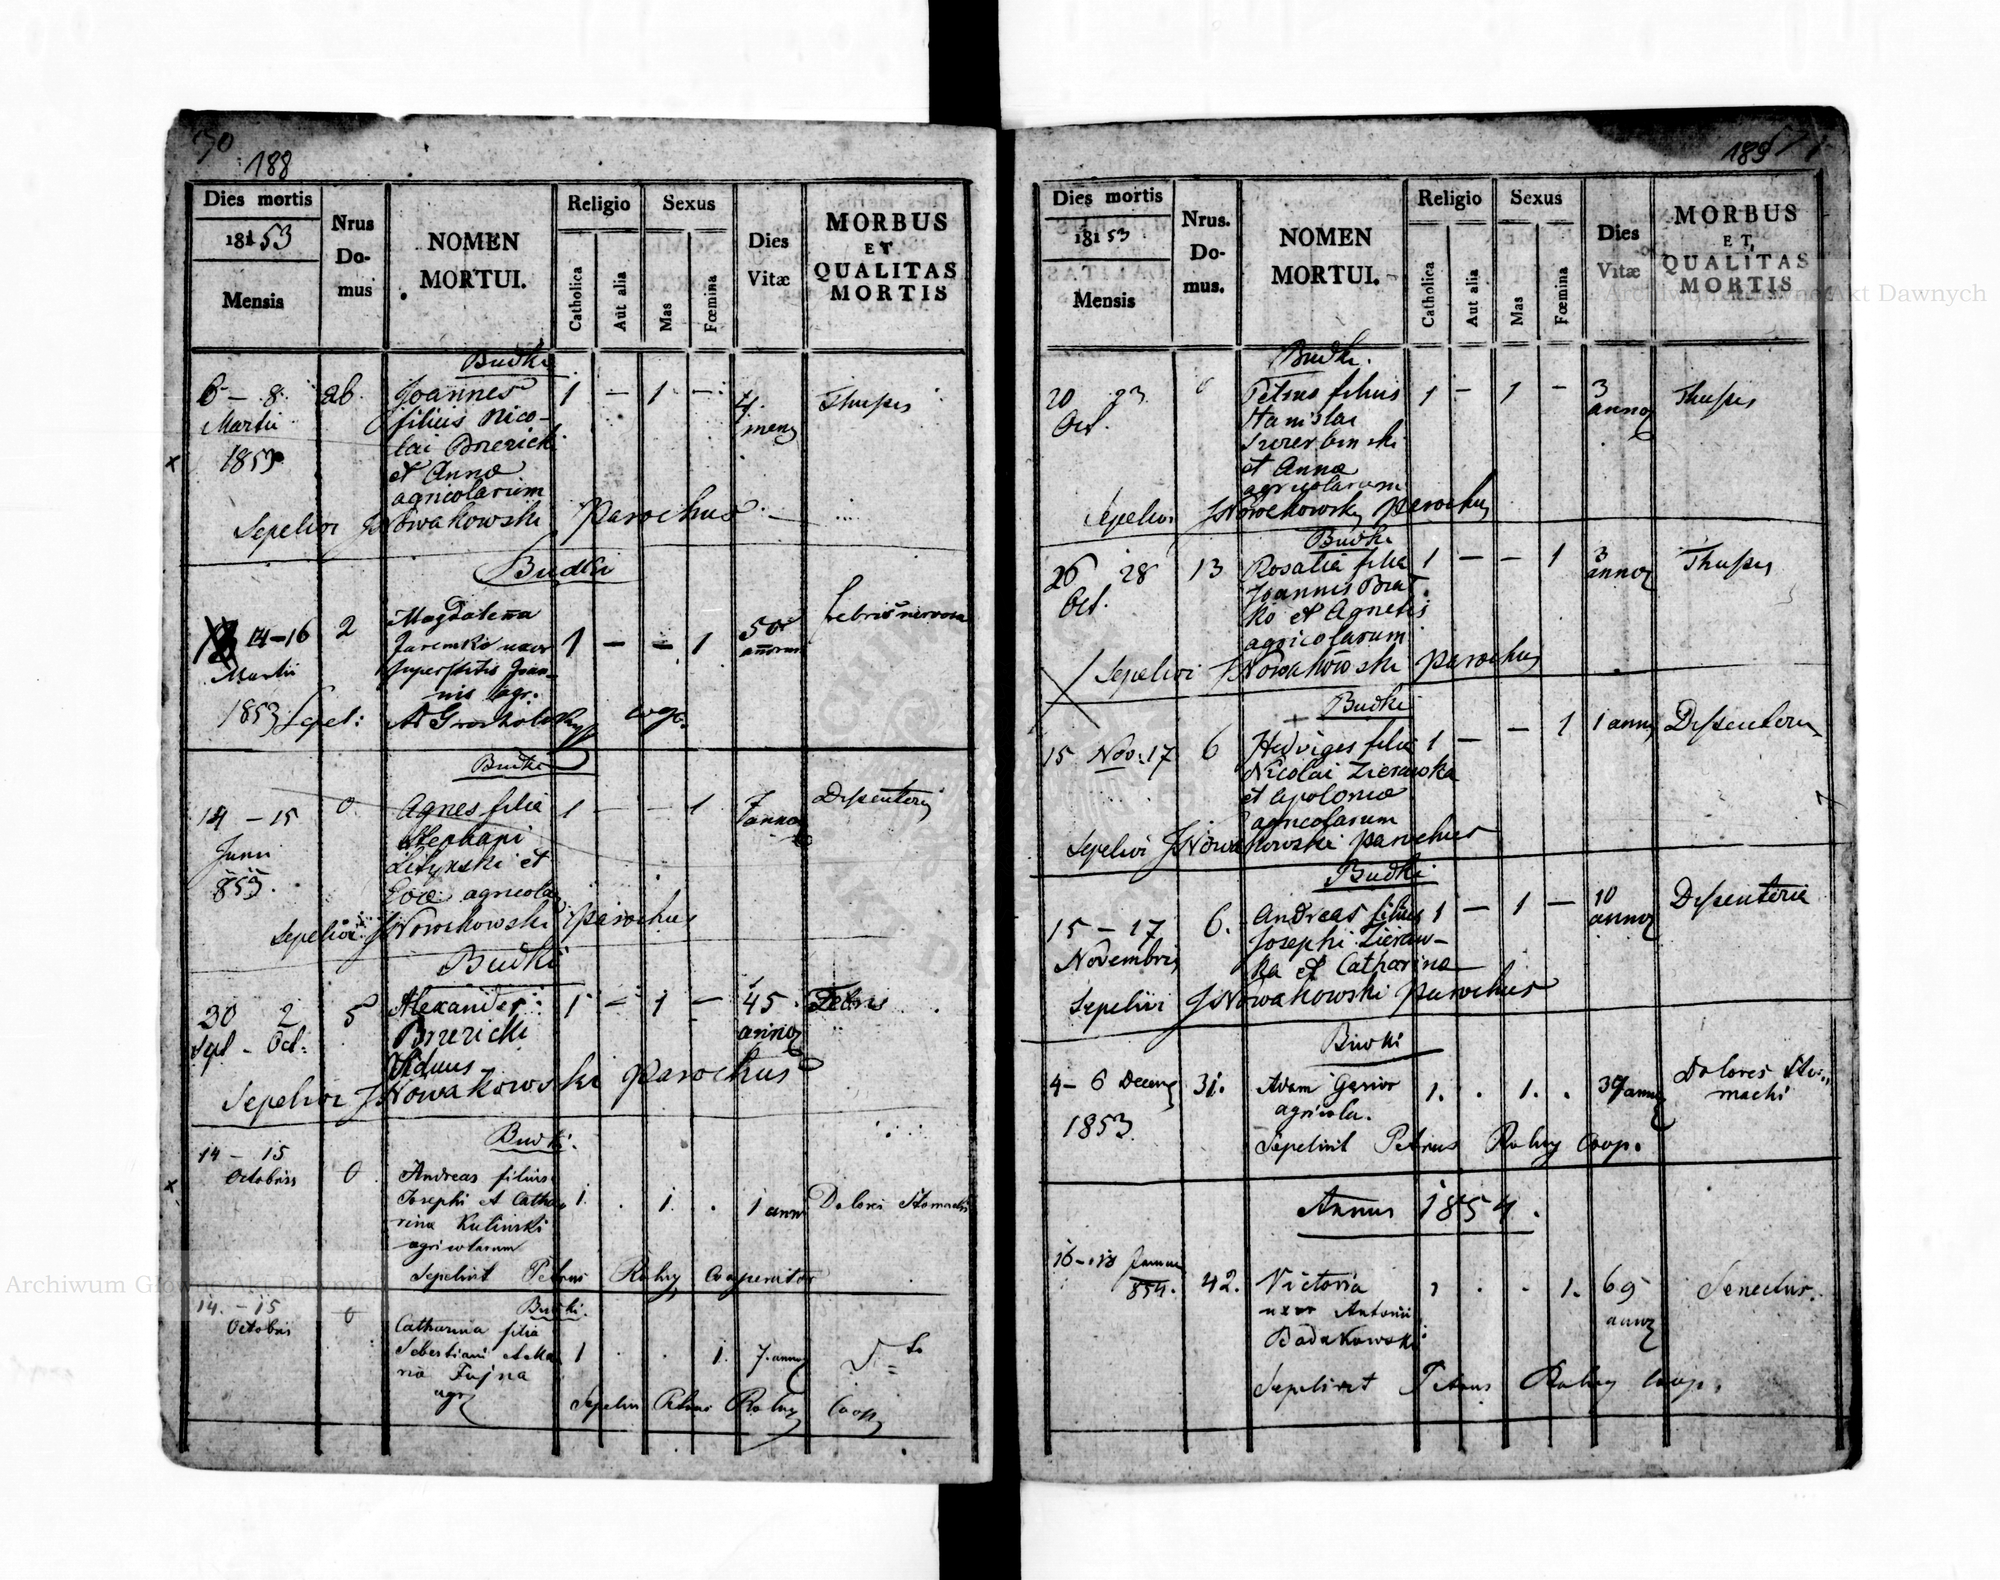 70
188
Dies mortis
1853
Mensis
Nrus
Do-
mus
NOMEN
MORTUI.
Religio
Catholica
Aut alia
Sexus
Mas
Fœmina
Dies
Vitæ
MORBUS
ET
QUALITAS
MORTIS
Budki
6 - 8 26. Joannes 1 — 1 — 4 Thussis
Martii filius Nico- menz
1853 lai Brzezicki
et Anna
agricolarum
Sepelivi JNowakowski parochus
Budki
14-16 2 Magdalena 1 — — 1 50 febris nervosa
Martii Jaremko uxor annorum
superstitis Joan-
nis agr.
1853 Sepel:
Budki
14 - 15 0. Agnes filia 1 — — 1 7 Dyssenteri
Junii Stephani anno
853. Litynski et
Evæ agricola
Sepelivi JNowakowski parochus
Budki
30 2 5 Alexander 1 — 1 — 45 Febris
Sept - Oct: Brzezicki anno
Viduus
Sepelivi JNowakowski parochus
Budki.
14 - 15 0 Andreas filius 1. . 1. . 1 ann Dolores Stomachi
Octobris Josephi et Catha
rina Kulinski
agricolarum
Sepelivit Petrus Cooperator
Budki.
14. - 15 0 Catharina filia 1 . . 1. 7. anno
Octobris Sebastiani et Ma
ria Fujna
agr
Sepelivi Petrus Coop
189
71
Dies mortis
1853
Mensis
Nrus.
Do-
mus.
NOMEN
MORTUI.
Religio
Catholica
Aut alia
Sexus
Mas
Fœmina
Dies
Vitæ
MORBUS
ET
QUALITAS
MORTIS
Budki.
20 23 0 Petrus filius 1 — 1 — 3 Thussis
Oct. Stanislai anno
et Anna
agricolarum
Sepelivi JNowakowski parochus
Budki
26 28 13 Rosalia filia 1 — — 1 3 Thussis
Oct. Joannis Brat anno
ko et Agnetis
agricolarum
Sepelivi JNowakowski parochus
Budki
15 Nov. 17 6 Hedviges filia 1 — — 1 1 ann Dyssenteria
Nicolai Zierawka
et Apolonia
agricolarum
Sepelivi JNowakowski parochus
Budki
15 - 17 6. Andreas filius 1 — 1 — 10 Dyssenteria
Novembris Josephi Zieraw- anno
ka et Catharina
Sepelivi JNowakowski parochus
Budki
4 - 6 Decem 31. Adam 1. . 1. . 39 ann Dolores Sto-
1853 agricola. machi
Sepelivit Petrus Coop.
Annus 1854.
16-18 Januar 42. Victoria 1 . . 1. 69 Senectus.
854. uxor Antonii anno
Badakowski
Sepelivit Petrus Coop.
Archiwum Główne Akt Dawnych
Archiwum Główne Akt Dawnych